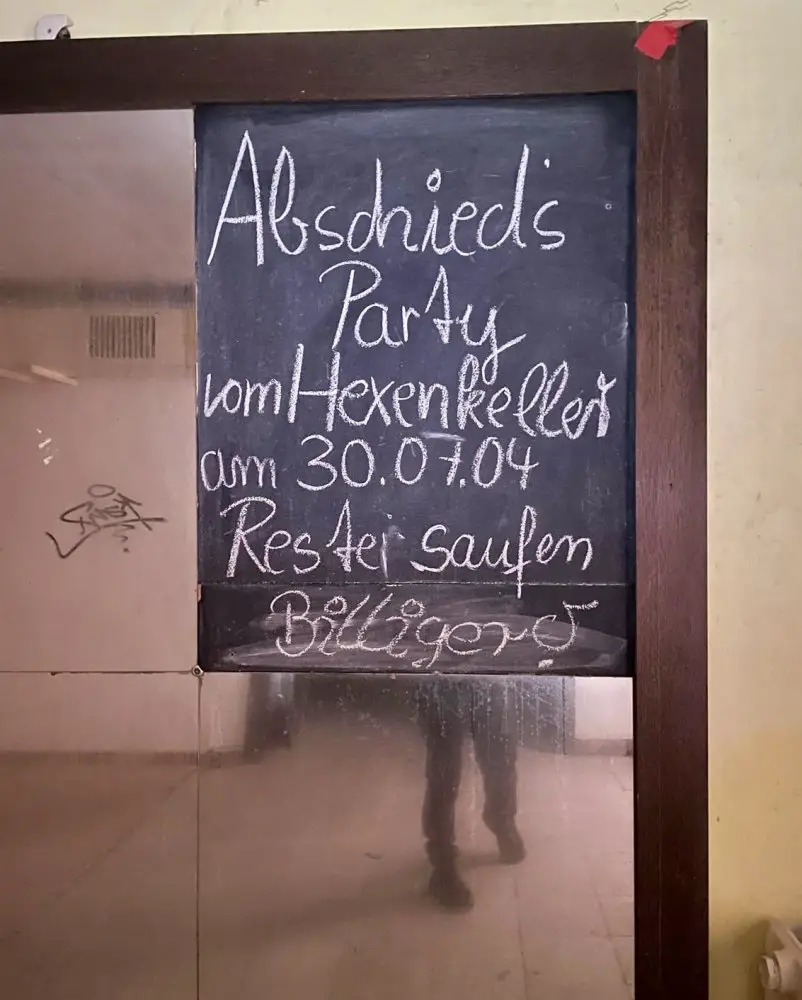 Abschied's
Party
vom Hexenkeller
am 30.07.04
Reste saufen
Billiger!